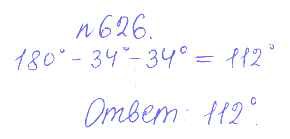 п 626.
180° - 34° - 34° = 112°
Ответ: 112°.